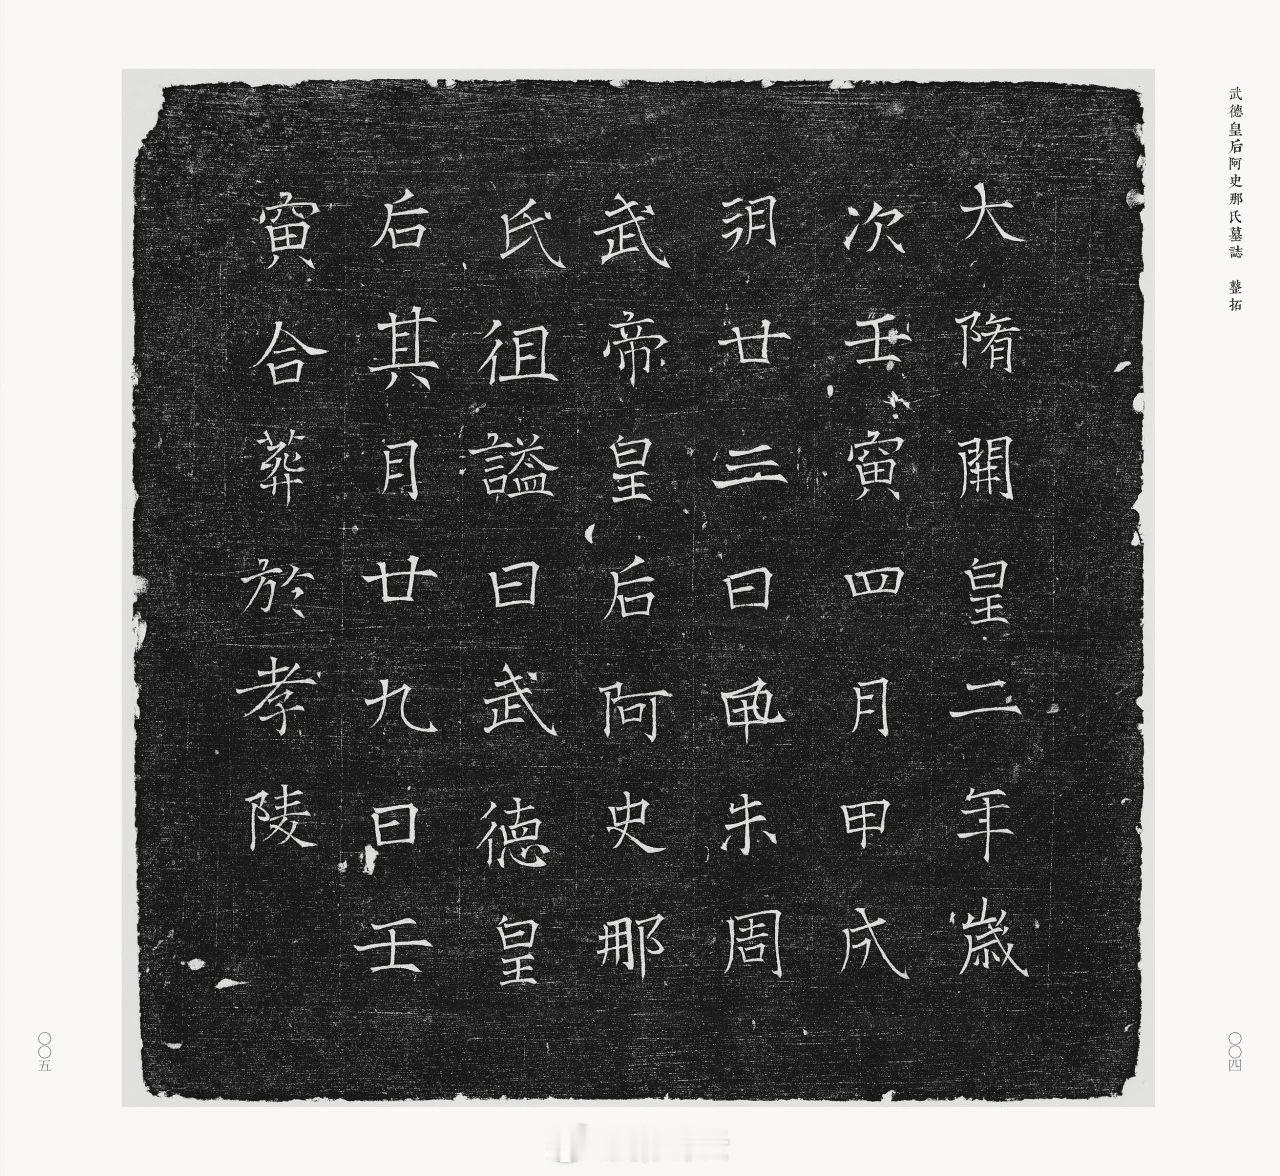 武德皇后阿史那氏墓誌　整拓
大隋開皇二年歲
次壬寅四月甲戌
朔廿三日甲朱周
武帝皇后阿史那
氏徂謚曰武德皇
后其月廿九日壬
寅合葬於孝陵
〇〇四
〇〇五